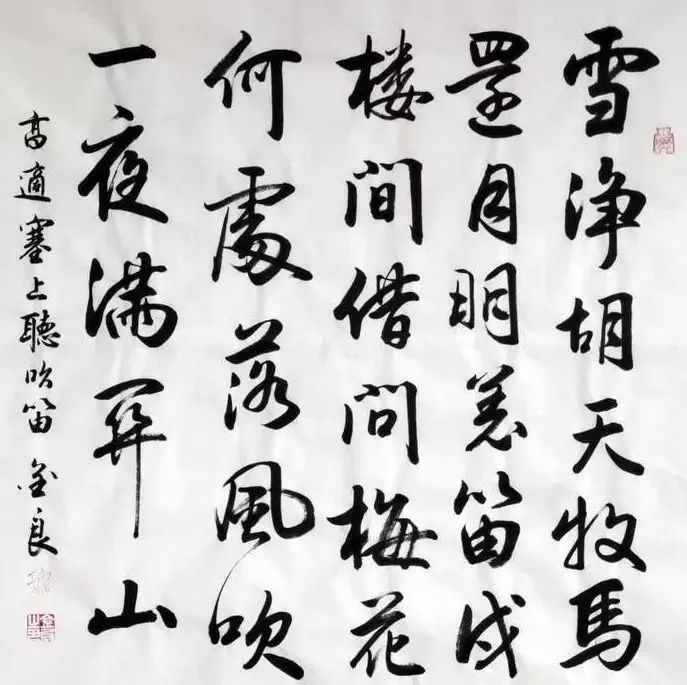 雪净胡天牧馬
還月明羌笛戍
楼間借問梅花
何處落風吹
一夜满關山
高適塞上聽吹笛 金良